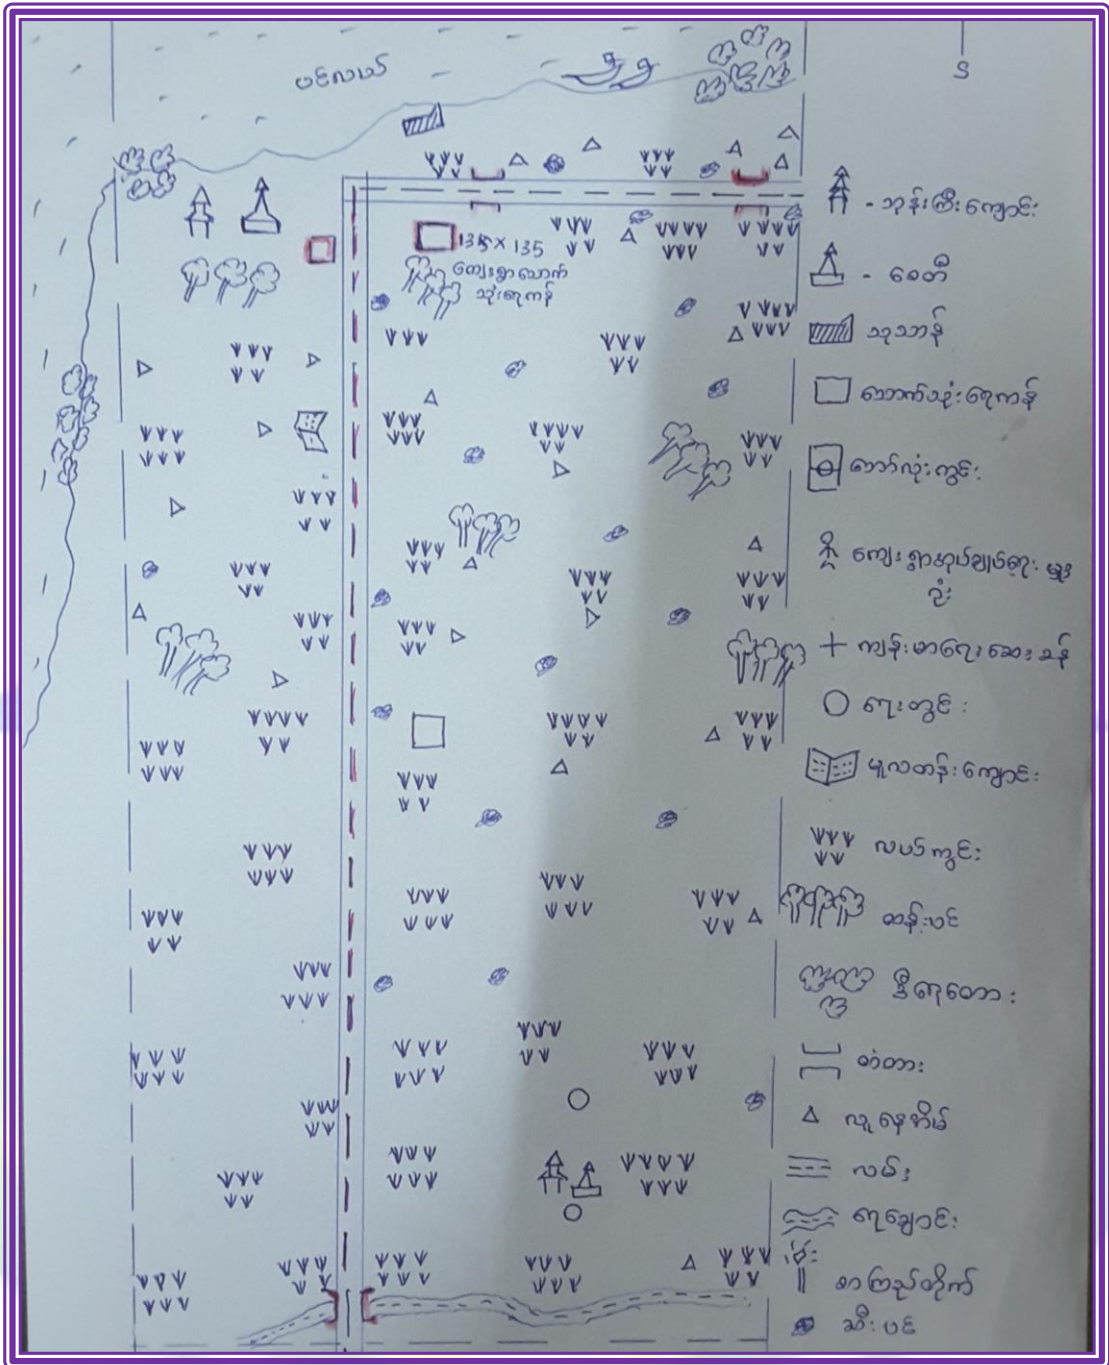 ပင်လယ်
S
135 × 135
ကျေးရွာသောက်
သုံးရေကန်
- ဘုန်းကြီးကျောင်း
- စေတီ
သုသာန်
သောက်သုံးရေကန်
ဘော်လုံးကွင်း
ကျေးရွာအုပ်ချုပ်ရေးမှူး
ရုံး
ကျန်းမာရေးဆေးခန်း
ရေတွင်း
မူလတန်းကျောင်း
လယ်ကွင်း
ထန်းပင်
ဒီရေတော
တံတား
လူနေအိမ်
လမ်း
ရေချောင်း
စာကြည့်တိုက်
ဆီးပင်